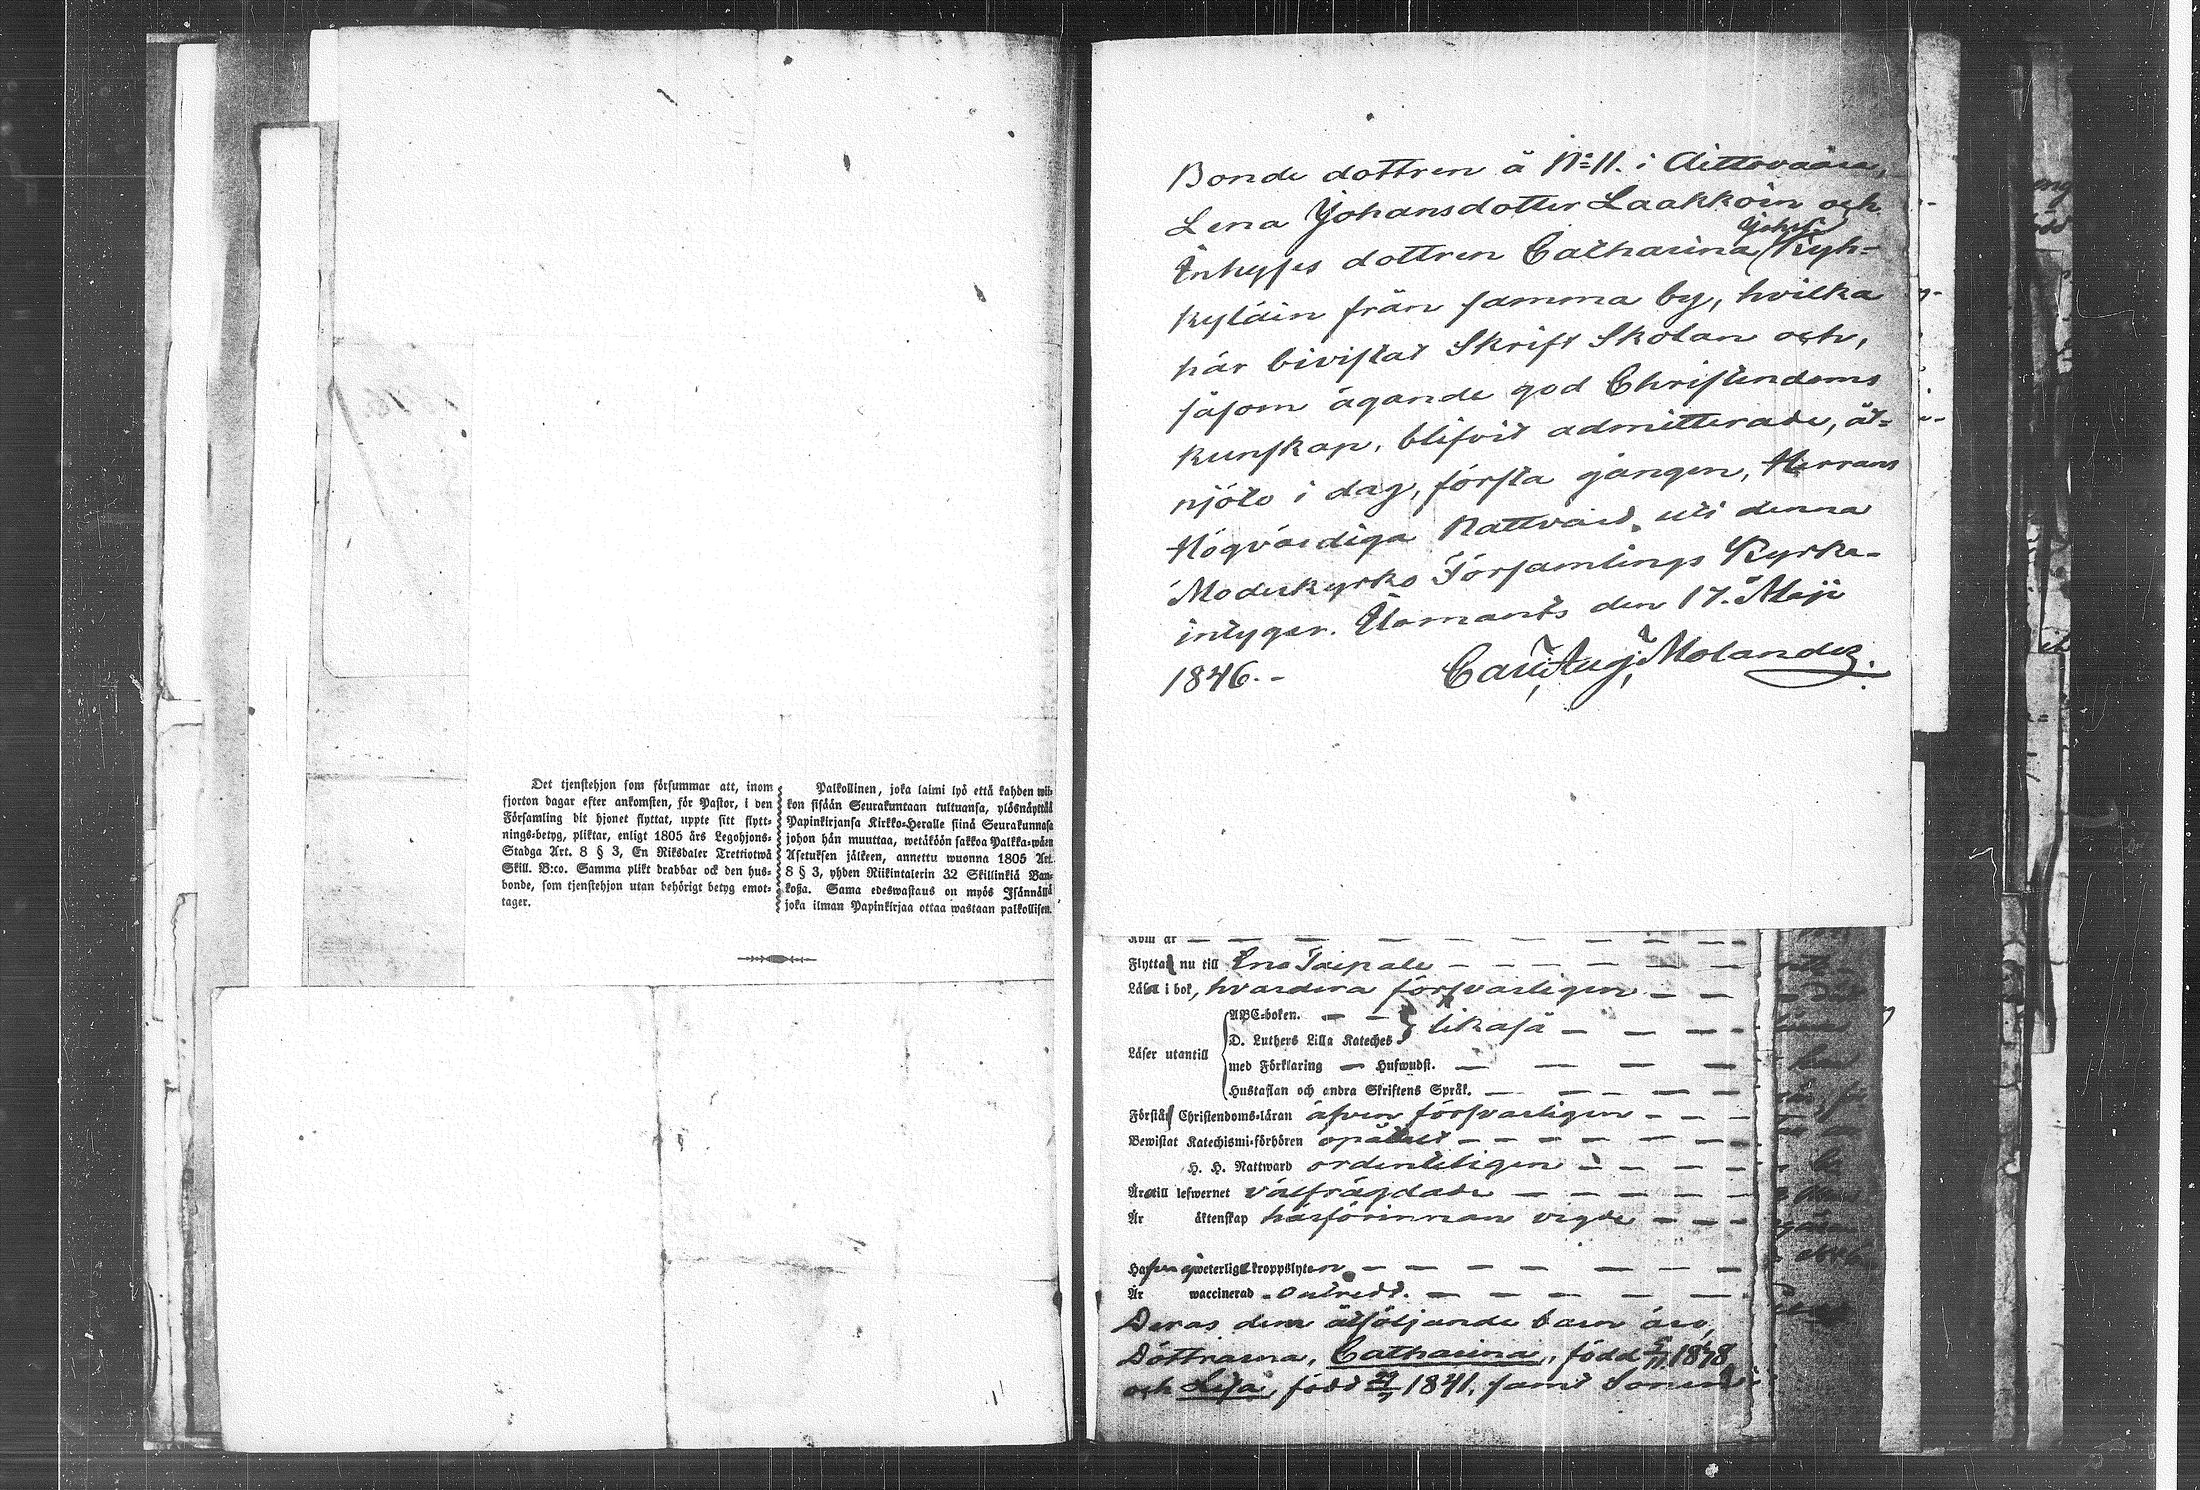 Det tjenstehjon som försummar att, inom
fjorton dagar efter ankomsten, för Pastor, i den
Församling dit hjonet flyttat, uppte sitt flytt-
nings-betyg, pliktar, enligt 1805 års Legohjons-
Stadga Art. 8 § 3, En Riksdaler Trettiotwå
Skill. B:co. Samma plikt drabbar ock den hus-
bonde, som tjenstehjon utan behörigt betyg emot-
tager.
Palkollinen, joka laimi lyö että kahden wii-
kon sisään Seurakuntaan tultuansa, ylösnäyttää
Papinkirjansa Kirkko-Heralle siinä Seurakunnasa
johon hän muuttaa, wetäköön sakkoa Palkka-wäen
Asetuksen jälkeen, annettu wuonna 1805 Art.
8 § 3, yhden Riikintalerin 32 Skillinkiä Ban-
koßa. Sama edeswastaus on myös Isännällä
joka ilman Papinkirjaa ottaa wastaan palkollisen.
Bonde dottren å N:o 11. i Aittovaara,
Lena Johansdotter Laakkoin och
Inhyses dottren Catharina Johsd. Kyh-
kyläin från samma by, hvilka
här bivistat Skrift Skolan och,
såsom ägande god Christendoms
kunskap, blifvit admitterade, åt-
njöto i dag, första gången, Herrans
Högvärdiga Nattvard uti denna
Moderkyrko Församlings Kyrka-
intygar. Ilomants den 17. Maji
1846.- Carl Aug. Molander.
Kom är
Flyttar nu till Eno Taipale
Läsa i bok, hvardera försvarligen
ABC-boken.
D. Luthers Lilla Kateches likaså
Läser utantill
med Förklaring Hufwudst.
Hustaflan och andra Skriftens Språk.
Förstår Christendoms-läran äfven försvarligen
Bewistat Katechismi-förhören opåtalt
H. H. Nattward ordenteligen
Är till lefwernet välfrägdade
Är äktenskap härförinnan vigde
Hafva ej weterliga kroppslyten
Är waccinerad
Deras dem åtföljande barn äro,
Döttrarna, Catharina, född
och Lisa, född 1841, samt Sonen